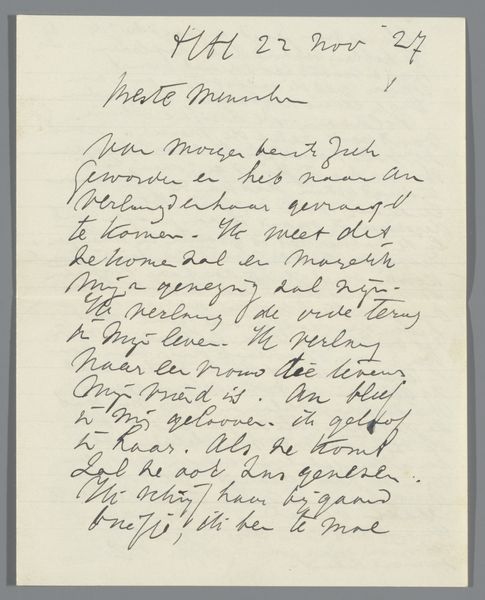 HbH 22 Nov '27
Beste Menschen
Van morgen ben ik ziek
geworden en heb naar An
verlangd en haar gevraagd
te komen. Ik weet dat
ze komen zal en mogelijk
mijn genezing zal zijn.
Ik verlang de orde terug
in mijn leven. Ik verlang
naar een vrouw die tevens
mijn vriend is. An blijf
in mij gelooven. ik geloof
in haar. Als ze komt
zal ze ook Ins genezen.
Ik schrijf haar bijgaand
briefje, ik ben te moe